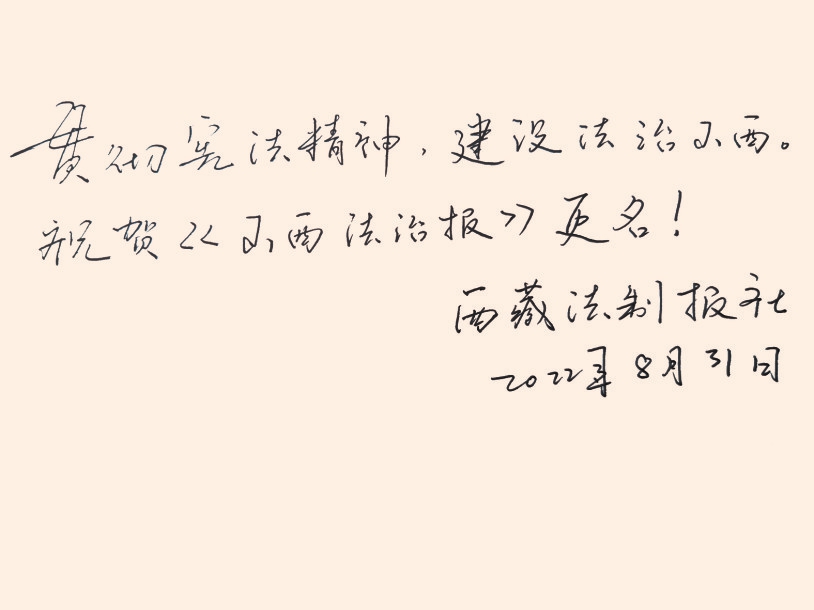 贯彻宪法精神，建设法治山西。
祝贺《山西法治报》更名！
西藏法制报社
2022年8月31日